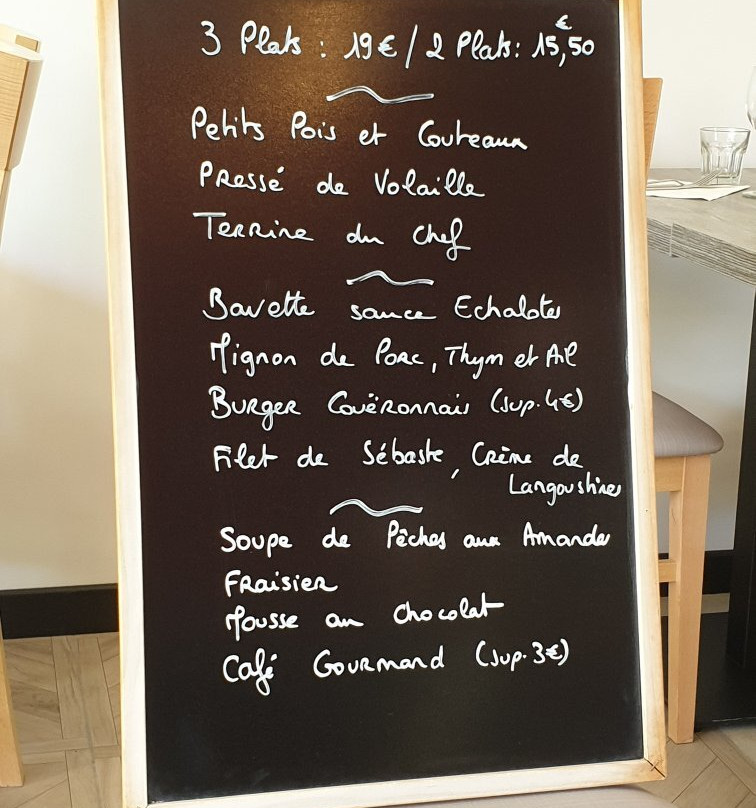 3 Plats : 19€ / 2 Plats : 15,50 €
Petits Pois et Couteaux
Pressé de Volaille
Terrine du Chef
Bavette sauce Echalotes
Mignon de Porc, Thym et Ail
Burger Couëronnais (sup. 4€)
Filet de Sébaste, Crème de
Langoustines
Soupe de Pêches aux Amandes
Fraisier
Mousse au chocolat
Café Gourmand (sup. 3€)